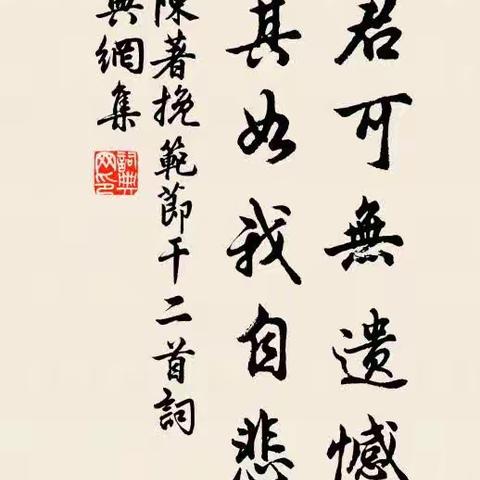 君可無遺憾
其如我自悲
陳著挽範節干二首詞
典網集
詞典